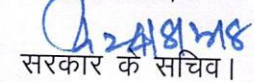 24/8/2018
सरकार के सचिव।